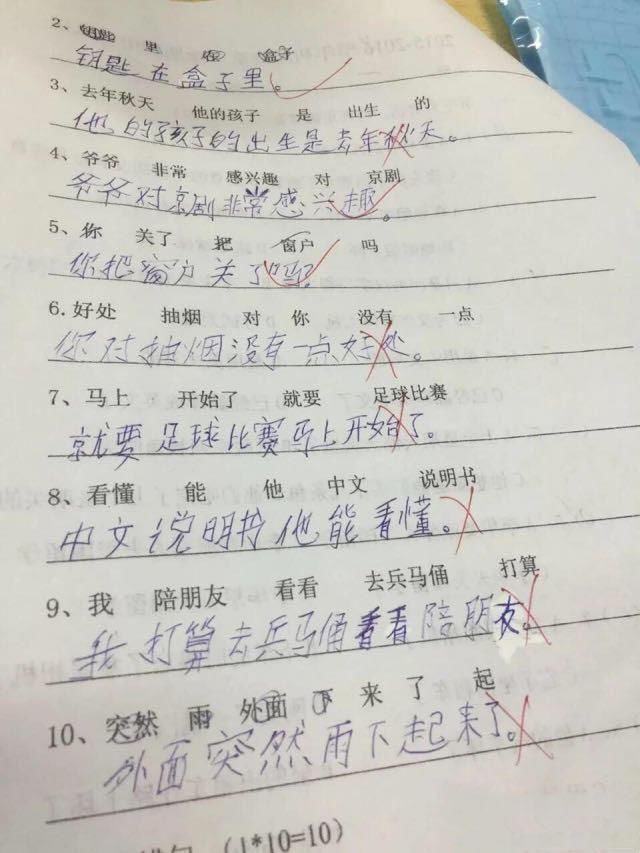 2、钥匙 里 在 盒子
钥匙在盒子里。
3、去年秋天 他的孩子 是 出生 的
他的孩子的出生是去年秋天。
4、爷爷 非常 感兴趣 对 京剧
爷爷对京剧非常感兴趣。
5、你 关了 把 窗户 吗
你把窗户关了吗?
6、好处 抽烟 对 你 没有 一点
你对抽烟没有一点好处。
7、马上 开始了 就要 足球比赛
就要足球比赛马上开始了。
8、看懂 能 他 中文 说明书
中文说明书他能看懂。
9、我 陪朋友 看看 去兵马俑 打算
我打算去兵马俑看看陪朋友。
10、突然 雨 外面 下 来 了 起
外面突然雨下起来了。
(1*10=10)